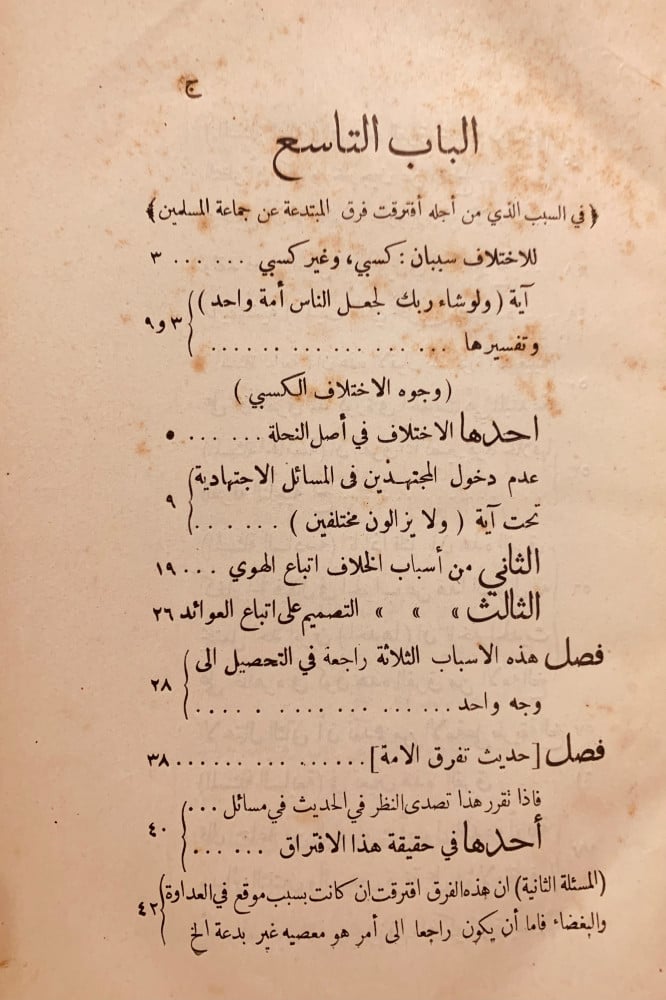 ج
الباب التاسع
﴿ في السبب الذي من أجله أفترقت فرق المبتدعة عن جماعة المسلمين ﴾
للاختلاف سببان : كسبي ، وغير كسبي ... ... ٣
آية ( ولو شاء ربك لجعل الناس أمة واحد )
وتفسيرها ... ... ... ... ... ... ٣ و ٩
( وجوه الاختلاف الكسبي )
احدها الاختلاف في أصل النحلة ... ... ٥
عدم دخول المجتهدين فى المسائل الاجتهادية
تحت آية ( ولا يزالون مختلفين ) ... ... ٩
الثاني من أسباب الخلاف اتباع الهوي ... ١٩
الثالث » » » التصميم على اتباع العوائد ٢٦
فصل هذه الاسباب الثلاثة راجعة في التحصيل الى
وجه واحد ... ... ... ... ... ... ٢٨
فصل [ حديث تفرق الامة ] ... ... ... ... ٣٨
فاذا تقرر هذا تصدى النظر في الحديث في مسائل ...
أحدها في حقيقة هذا الافتراق ... ... ٤٠
( المسئلة الثانية ) ان هذه الفرق افترقت ان كانت بسبب موقع في العداوة
والبغضاء فاما أن يكون راجعا الى أمر هو معصيه غير بدعة الخ ٤٢